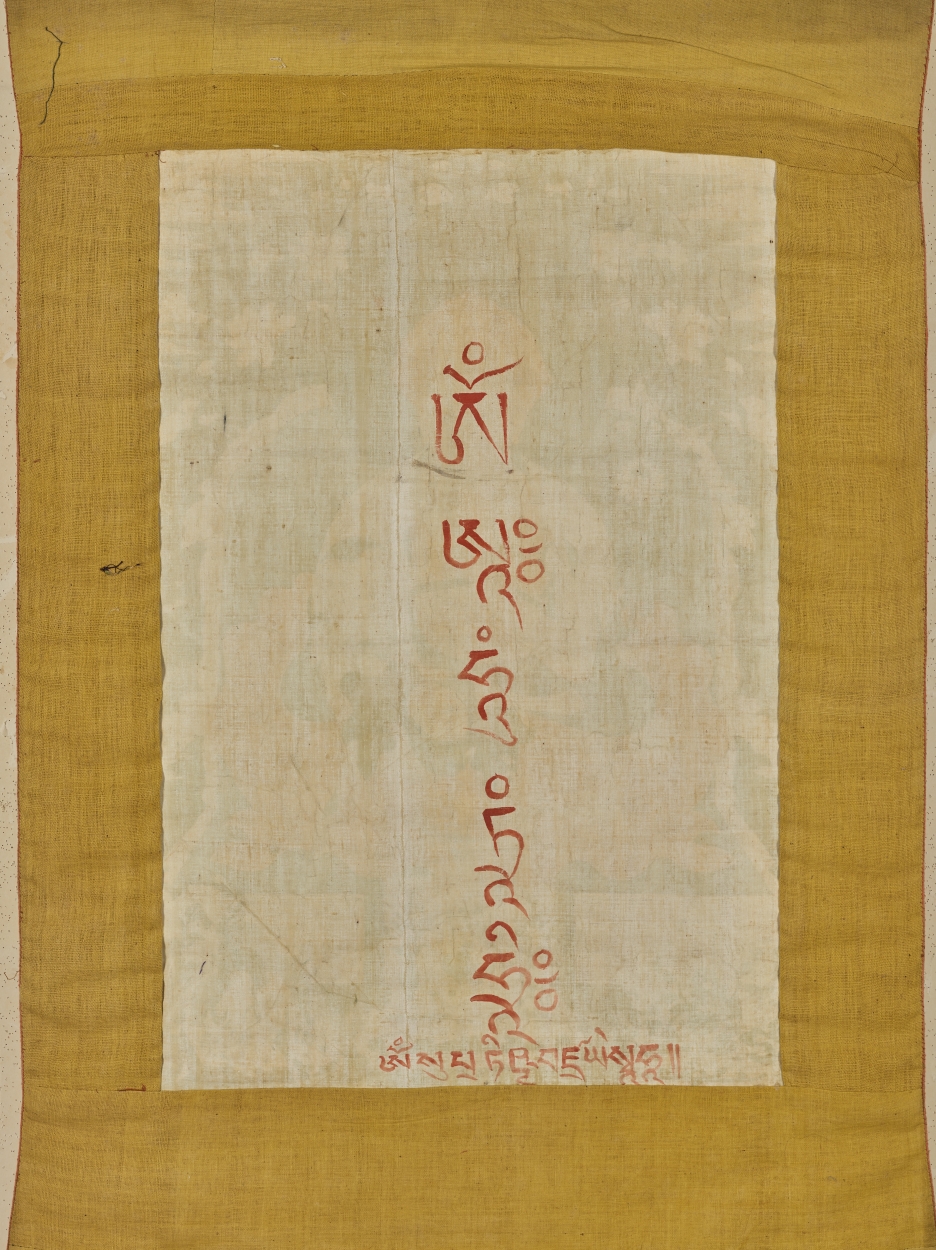 ཨོཾ
ཨཱཿ
ཧཱུཾ
ཏྲཱཾ
ཧྲཱིཿ
ཨོཾ་སུ་པྲ་ཏིཥྛ་བཛྲ་ཡེ་སྭཱ་ཧཱ༎